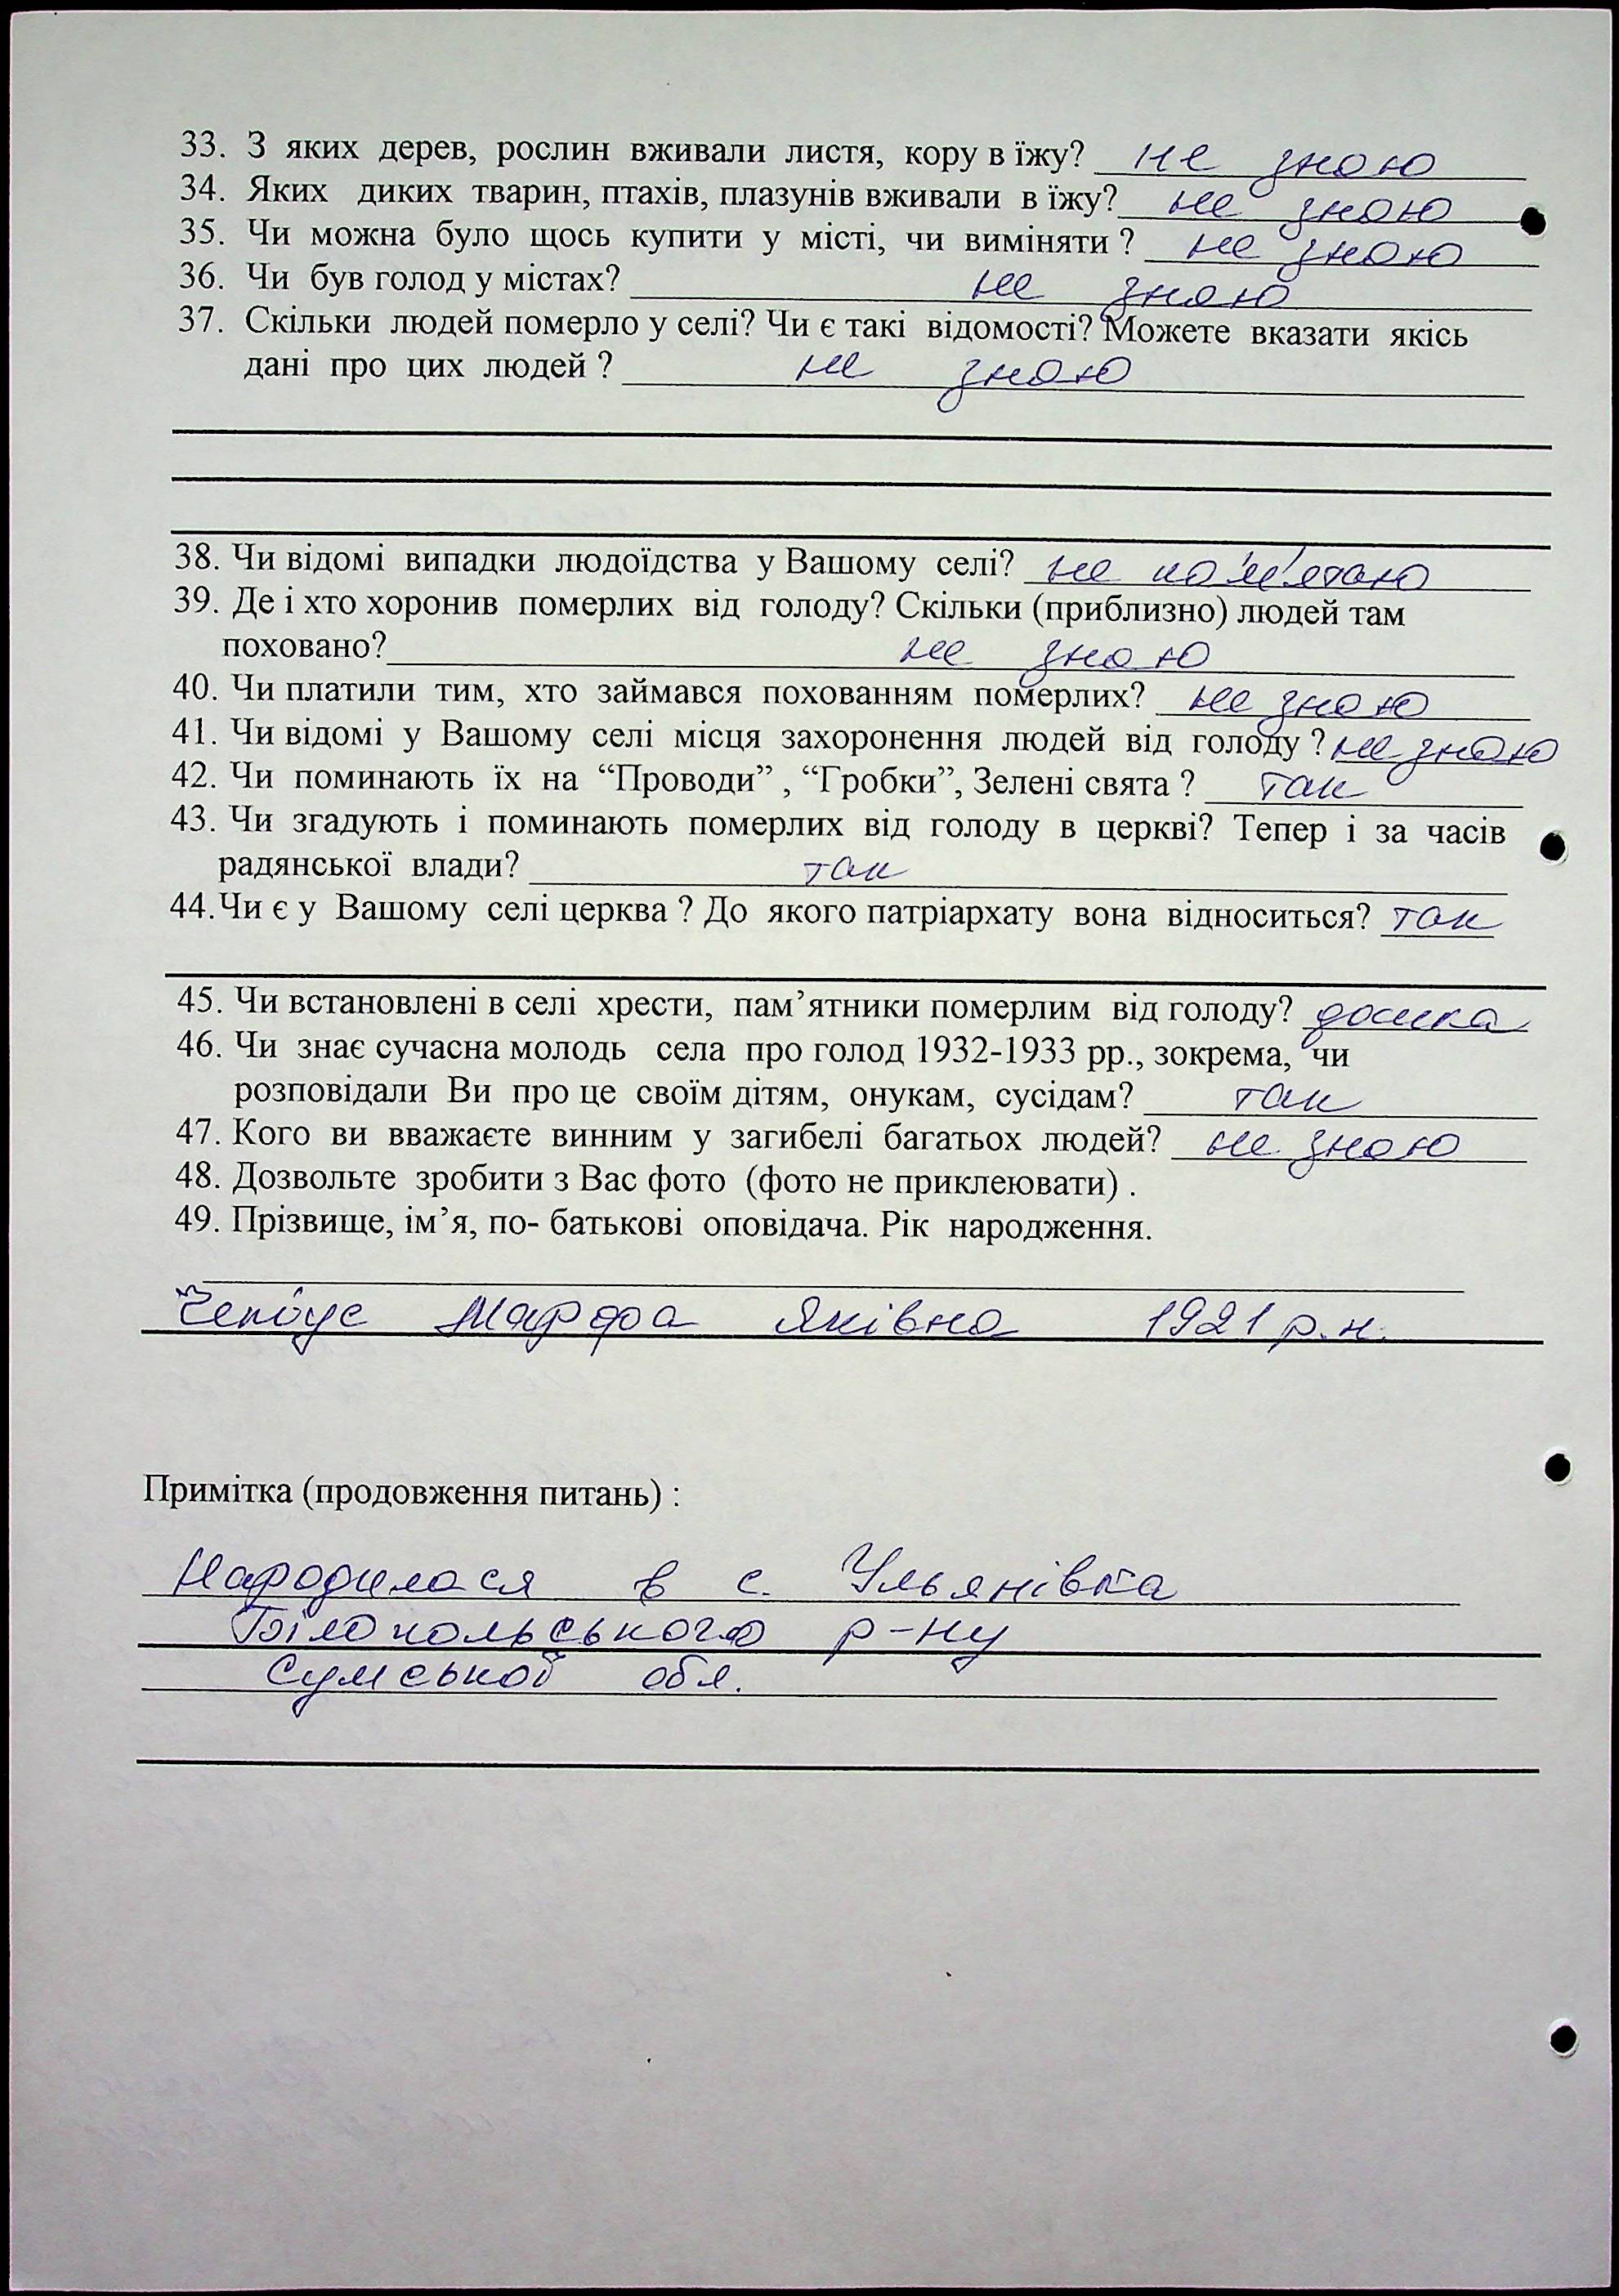 33. З яких дерев, рослин вживали листя, кору в їжу? не знаю
34. Яких диких тварин, птахів, плазунів вживали в їжу? не знаю
35. Чи можна було щось купити у місті, чи виміняти ? не знаю
36. Чи був голод у містах? не знаю
37. Скільки людей померло у селі? Чи є такі відомості? Можете вказати якісь
дані про цих людей ? не знаю
38. Чи відомі випадки людоїдства у Вашому селі? не пам'ятаю
39. Де і хто хоронив померлих від голоду? Скільки (приблизно) людей там
поховано? не знаю
40. Чи платили тим, хто займався похованням померлих? не знаю
41. Чи відомі у Вашому селі місця захоронення людей від голоду ? не знаю
42. Чи поминають їх на “Проводи” , “Гробки”, Зелені свята ? так
43. Чи згадують і поминають померлих від голоду в церкві? Тепер і за часів
радянської влади? так
44.Чи є у Вашому селі церква ? До якого патріархату вона відноситься? так
45. Чи встановлені в селі хрести, пам’ятники померлим від голоду? дошка
46. Чи знає сучасна молодь села про голод 1932-1933 рр., зокрема, чи
розповідали Ви про це своїм дітям, онукам, сусідам? так
47. Кого ви вважаєте винним у загибелі багатьох людей? не знаю
48. Дозвольте зробити з Вас фото (фото не приклеювати) .
49. Прізвище, ім’я, по- батькові оповідача. Рік народження.
Марфа Яківна 1921 р.н.
Примітка (продовження питань) :
Народилася в с. Ульянівка
Білопольського р-ну
Сумської обл.